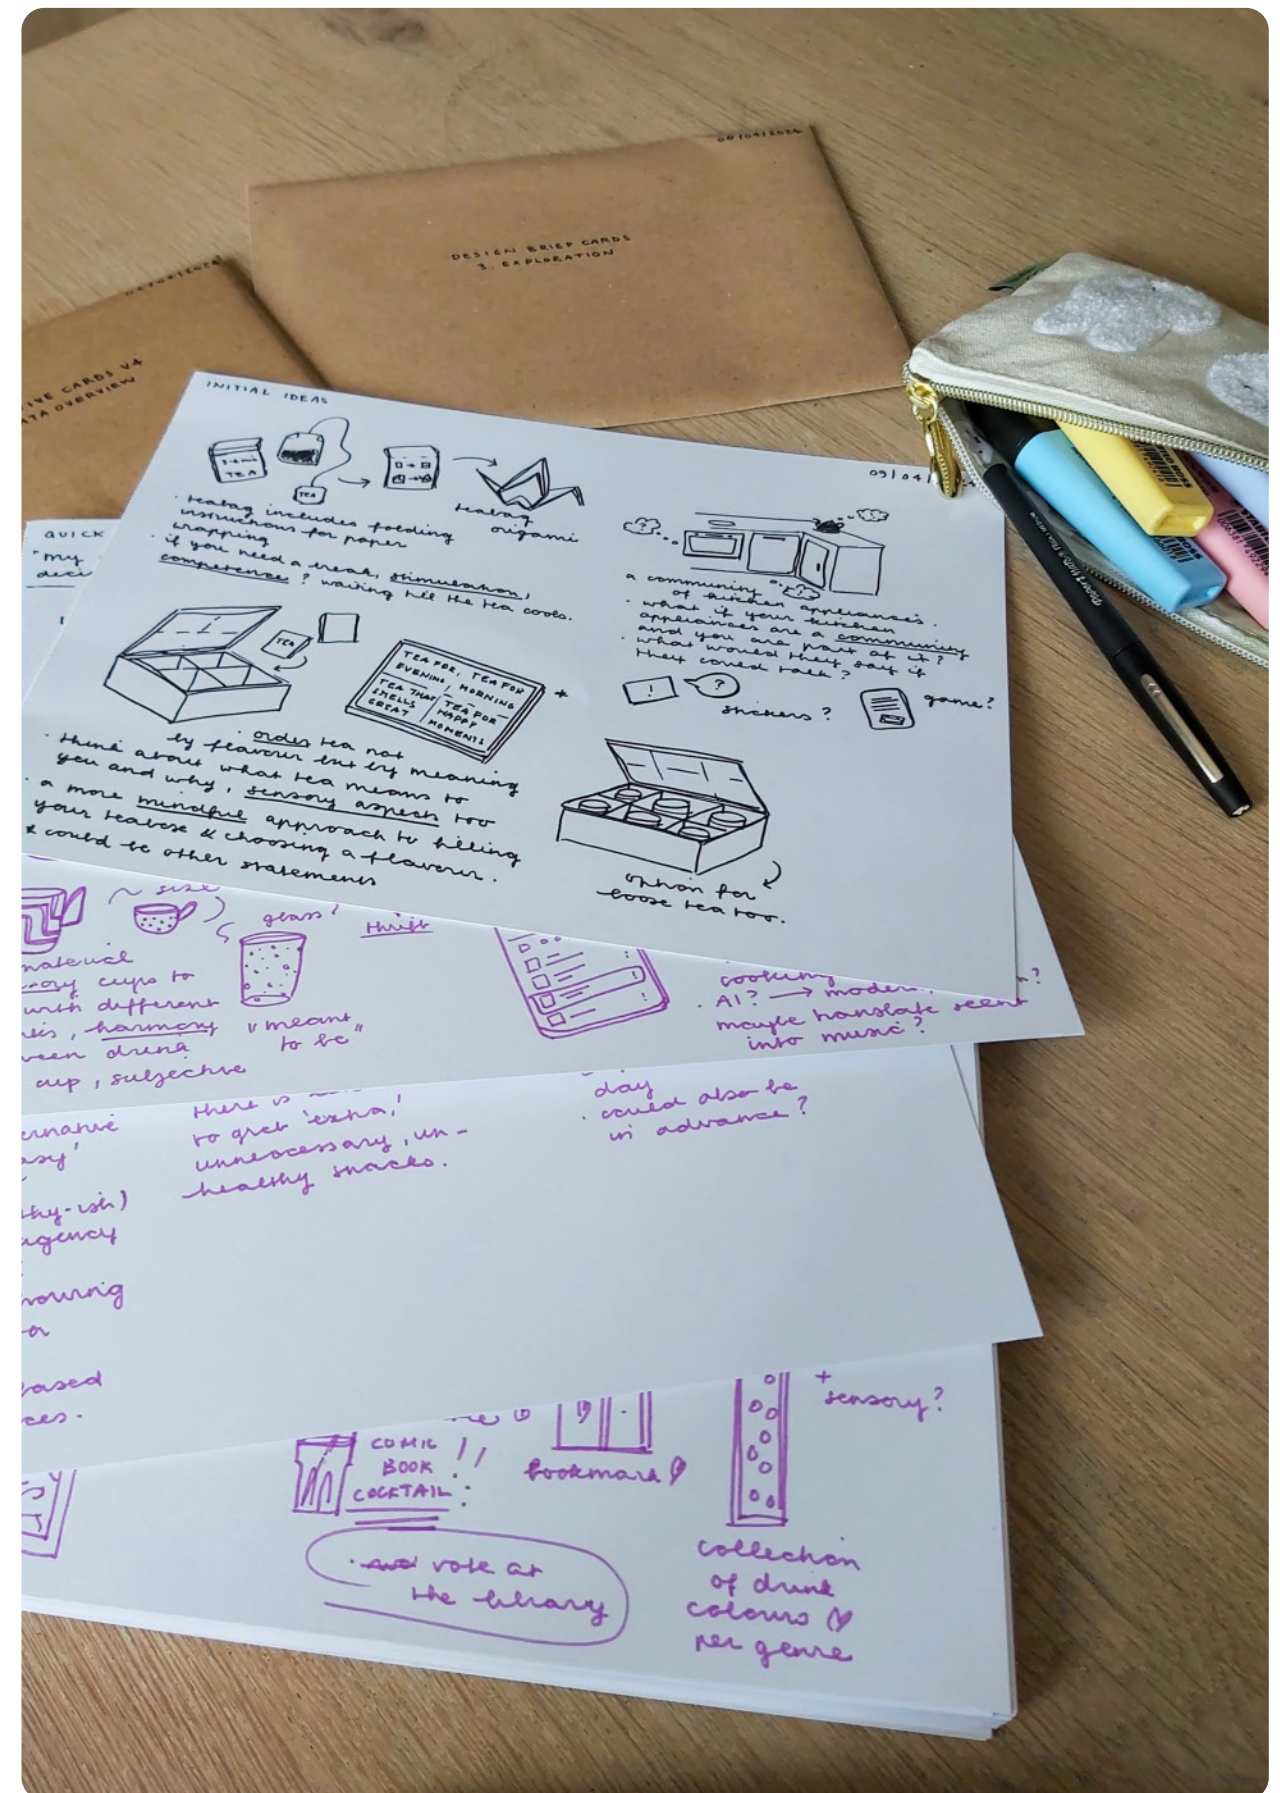 08/04/2024
DESIGN BRIEF CARDS
3. EXPLORATION
IVE CARDS V4
TA OVERVIEW
INITIAL IDEAS
09/04/
TEA
TEA
· teabag includes folding
instructions for paper
wrapping
· if you need a break, stimulation,
competence? waiting till the tea cools.
teabag
origami
a community
of kitchen appliances.
· what if your kitchen
appliances are a community
and you are part of it?
· what would they say if
they could talk?
!
?
stickers?
game?
TEA
TEA FOR, TEA FOR
EVENING, MORNING
TEA THAT
SMELLS
GREAT
TEA FOR
HAPPY
MOMENTS
*
· order tea not
by flavour but by meaning
· think about what tea means to
you and why, sensory aspects too
· a more mindful approach to filling
your teabox & choosing a flavour.
* could be other statements
option for
loose tea too.
QUICK
"my
deci
~ size
glass?
thrift
material
cups to
with different
harmony
ween drink
cup, subjective
"meant
to be"
cooking
· AI? → modern
maybe translate scent
into music?
ernative
asy'
thy-ish)
agency
owing
ased
ces.
there is
to get 'extra,'
unnecessary, un-
healthy snacks.
day
· could also be
in advance?
COMIC
BOOK
COCKTAIL
!!
bookmark
+
sensory?
· and vote at
the library
collection
of drink
colours
per genre